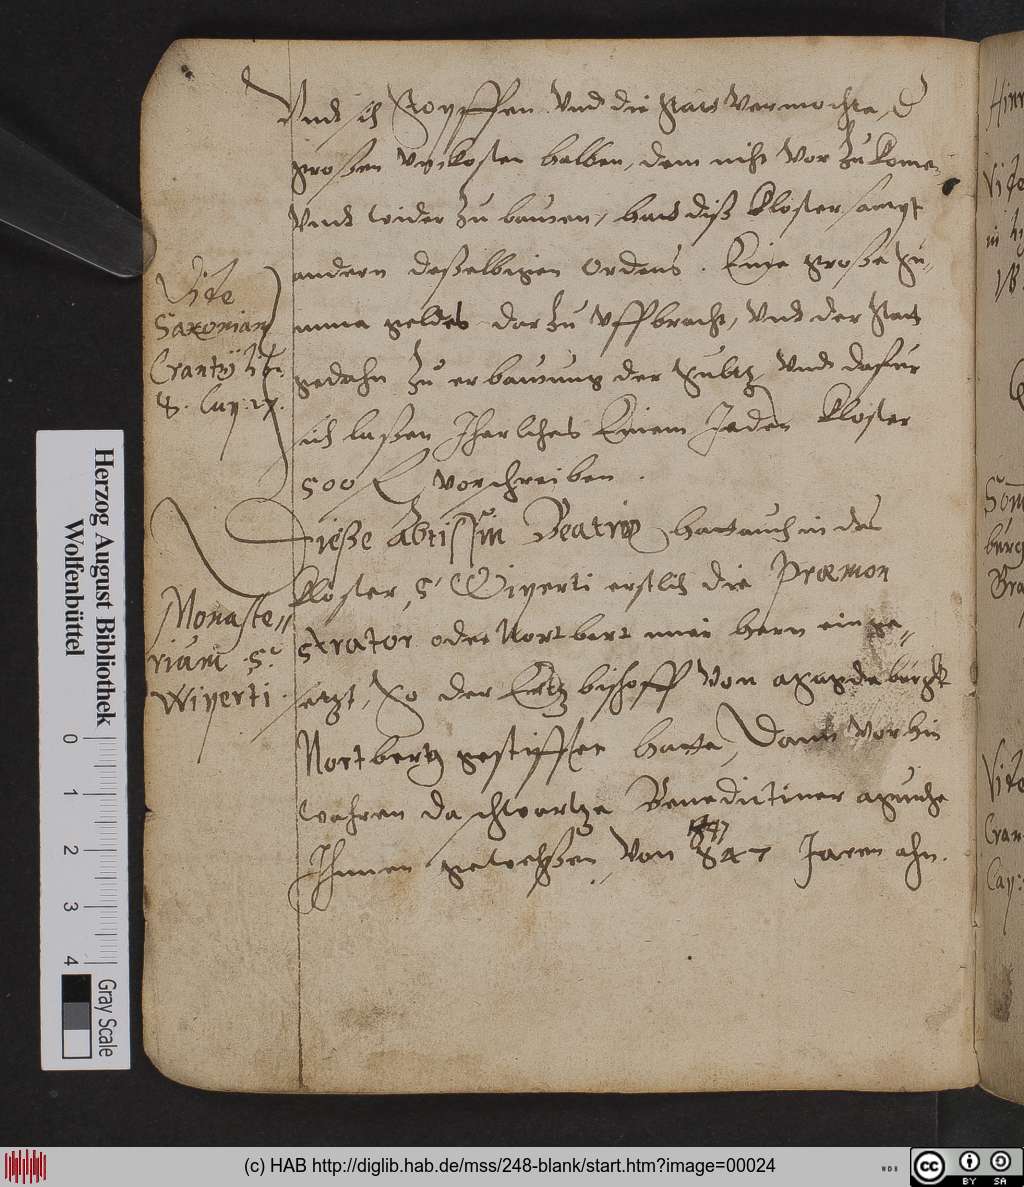 Vnd sich Stoyffen Vnd die Stat Vermochte, d
großen Vnkosten halben, dem nicht Vor zu kome-
Vnd wider zu bauwen, hat diß Kloster sampt
andern desselbigen Ordens. Eine große Su-
mma geldes dar zu vffbracht, Vnd der Stat
gedahn zu erbauwung der Vnd dafür
sich laßen Jherliches Einem Jeden Kloster
500 fl vorschreiben.
Vide
Saxoniam
Crantzij lib.
8. Cap. 27.
Dieße Abtissin Beatrix hatt auch in das
Kloster S. Wiperti erstlich die Præmon
strator oder Nortbertiner hern einge-
setzt, So der Ertzbischoff Von Magdeburgk
Nortbertg gestifftet hatte, Dann Vorhin
wahren da schwartze Benedictiner Munche
Ihnnen gewehßen, Von 847 Jaren ahn.
Monaste-
rium S.
Wiperti.
Vide
Cran
Cap:
Herzog August Bibliothek
Wolfenbüttel
0 1 2 3 4
Gray Scale
(c) HAB http://diglib.hab.de/mss/248-blank/start.htm?image=00024
WDB
cc BY SA